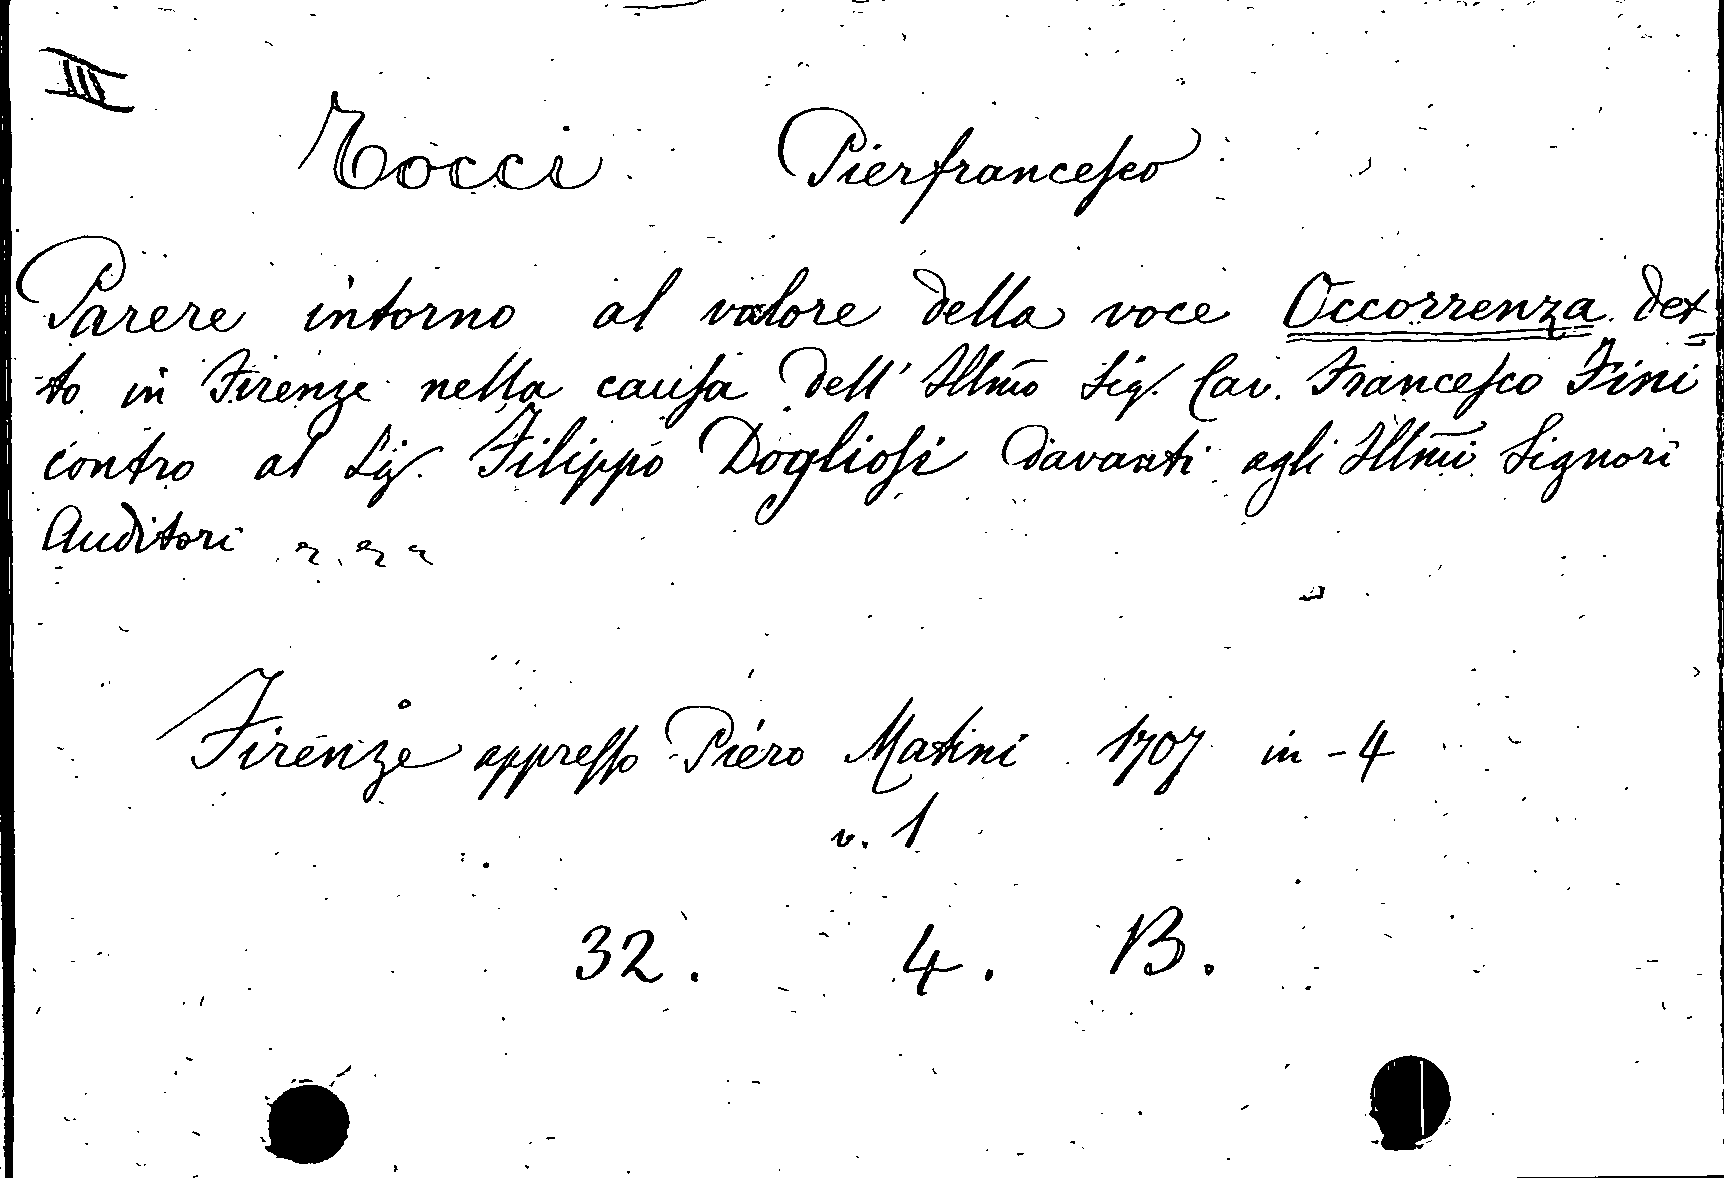 III
Tocci Pierfrancesco
Parere intorno al valore della voce Occorrenza det=
to in Firenze nella causa dell' Illmo Sig. Cav. Francesco Fini
contro al Sig. Filippo Dogliosi davanti agli Illmi Signori
Auditori
Firenze appresso Piero Matini 1707 in-4
v. 1
32. 4. B.